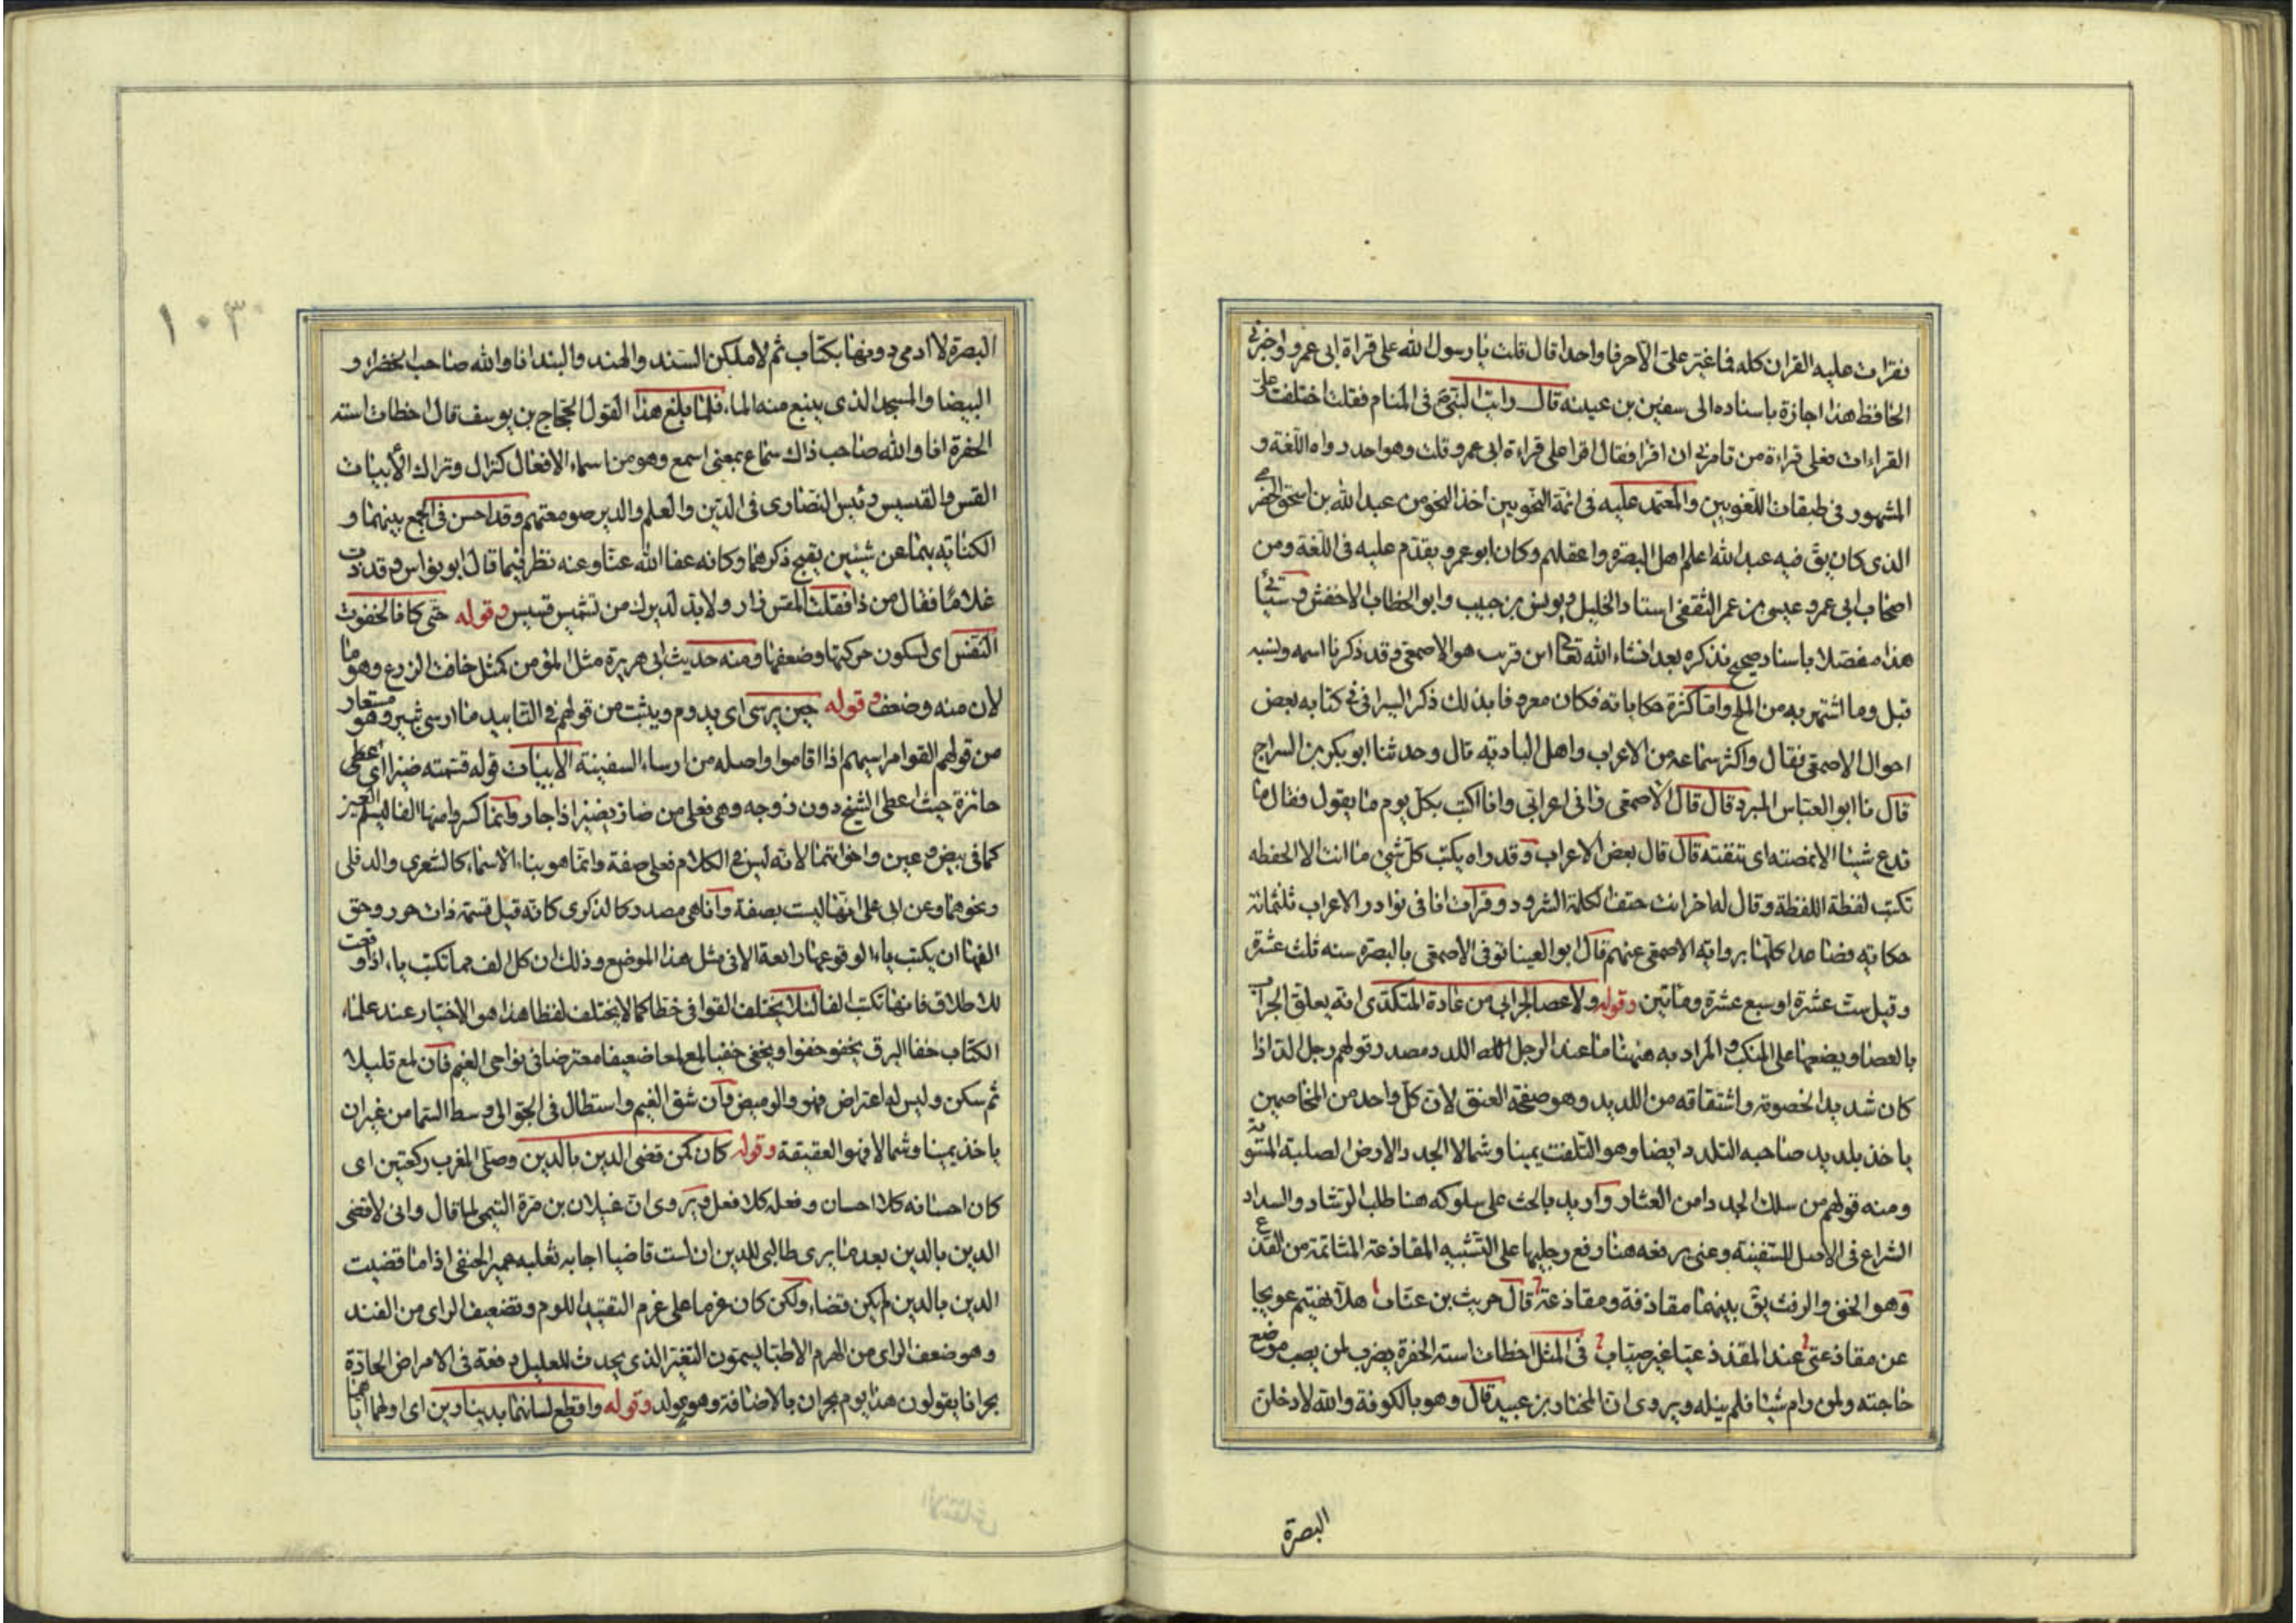 فقرات عليه القران كله فما غير على الا حرفا واحدا قال قلت يا رسول الله على قراة ابى عمرو واخبرنى
الحافظ هذا اجازة باسناده الى سفين بن عيينه قال رايت النبى ص فى المنام فقلت اختلفت على
القراءات فعلى قراءة من تامرنى ان اقرا فقال اقرا على قراءة ابى عمرو قلت وهو احد رواه اللغة و
المشهور فى طبقات اللغويين والمعتمد عليه فى ائمة النحويين اخذ النحو من عبد الله بن اسحق الحضرمى
الذى كان يق فيه عبد الله اعلم اهل البصره واعقلهم وكان ابو عمرو يقدم عليه فى اللغة ومن
اصحاب ابى عمرو عيسى بن عمر الثقفى استاد الخليل ويونس بن حبيب وابو الخطاب الاخفش وستاتى
هذا مفصلا باسناد صحيح نذكره بعد انشاء الله تعالى ابن قريب هو الاصمعى وقد ذكرنا اسمه ونسبه
قبل وما اشتهر به من الملح واما كثرة حكاياته فكان معروفا بذلك ذكر السيرافى فى كتابه بعض
احوال الاصمعى فقال واكثر سماعه من الاعراب واهل البادية قال وحدثنا ابو بكر بن السراج
قال نا ابو العباس المبرد قال قال الاصمعى رانى اعرابى وانا اكتب بكل يوم ما يقول فقال ما
تدع شيئا الا نمصته اى نتقته قال قال بعض الاعراب وقد راه يكتب كل شى ما انت الا الحفظه
تكتب لفظة اللفظة وقال له اخر انت حتف الكلمة الشرود وقرات انا فى نوادر الاعراب ثلثمائة
حكاية فصاعدا كلها برواية الاصمعى عنهم قال ابو العينا توفى الاصمعى بالبصرة سنه ثلث عشرة
وقيل ست عشرة او سبع عشرة ومائتين وقوله ولاعصا لجرابى من عادة المتكدى انه يعلق الجراب
بالعصا ويضعها على المنكب والمراد به هنهنا ما عند الرجل اللدد مصدر قولهم رجل الد اذا
كان شديد الخصومة واشتقاقه من اللديد وهو صفحة العنق لان كل واحد من المخاصمين
ياخذ بلديد صاحبه التلدد ايضا وهو التلفت يمينا وشمالا الجدد الارض الصلبة المستوية
ومنه قولهم من سلك الجدد امن العثار واريد بالحث على سلوكه هنا طلب الرشاد والسداد
الشراع فى الاصل للسفينة وعنى برفعه هنا رفع رجليها على التشبيه المقاذعة المشاتمة من القذع
وهو الخنى والرفث يق بينهما مقاذفة ومقاذعة قال حريث بن عتاب هلا نهيتم عويجا
عن مقاذعتى عبد المقذ ذعيا غير صياب فى المثل اخطات استه الحفرة يضرب لمن يصب موضع
حاجته ولمن رام شيئا فلم ينله ويروى ان المختار بن عبيد قال وهو بالكوفة والله لادخلن
البصرة
١٠٣
البصرة لا ادمى دونها بكتاب ثم لاملكن السند والهند والبند انا والله صاحب الخضراء و
البيضا والمسجد الذى ينبع منه الماء، فلما بلغ هذا القول الحجاج بن يوسف قال اخطات استه
الحفرة انا والله صاحب ذاك سماع بمعنى اسمع وهو من اسماء الافعال كنزال وتراك الأبيات
القس والقسيس رئيس النصارى فى الدين والعلم والدير صومعتهم وقد احسن فى الجمع بينهما و
الكناية بهما عن شيئين يقبح ذكرهما وكانه عفا الله عنا وعنه نظر فيما قال ابو نواس وقد رات
غلاما فقال من ذا فقلت القس زار ولا بد لدير من تشميس قسيس وقوله حتى كافا لخفوت
النفس اى لسكون حركتها وضعفها ومنه حديث ابى هريرة مثل المؤمن كمثل خافت الزرع وهو ما
لان منه وضعف وقوله حين يرسى اى يدوم ويثبت من قولهم فى التابيد ما ارسى ثبير وهو مستعار
من قولهم القوا مراسيهم اذا اقاموا واصله من ارساء السفينة الابيات قوله قسمته ضيزا اى اعطى
جائزة حيث اعطى الشيخ دون زوجه وهى فعلى من ضاز يضيز اذا جار وانما كسروا منها الفا ليسلم العيز
كما فى بيض وعين واخواتهما لانه ليس فى الكلام فعلى صفة وانما هو بناء الاسماء كالشعرى والدفلى
ونحوهما وعن ابى على انها ليست بصفة وانما هى مصدر كالذكرى كانه قيل قسمة ذات جور وحق
الفها ان يكتب ياء، لوقوعها رابعة الا فى مثل هذا الموضع وذلك ان كل الف مما تكتب ياء، اذا وقعت
للاطلاق فانها تكتب الفا لئلا يختلف القوافى خطا كما لا يختلف لفظا هذا هو الاختيار عند علماء
الكتاب خفا البرق يخفو خفوا ويخفى خفيا لمع لمعا ضعيفا معترضا فى نواحى الغيم فان لمع قليلا
ثم سكن وليس له اعتراض فهو الوميض وان شق الغيم واستطال فى الجو الى وسط السما من غير ان
ياخذ يمينا وشمالا فهو العقيقة وقوله كان كمن قضى الدين بالدين وصلى المغرب ركعتين اى
كان احسانه كلا احسان وفعله كلا فعل ويروى ان غيلان بن مرة التيمى لما قال وانى لاقضى
الدين بالدين بعد ما يرى طالبى للدين ان لست قاضيا اجابه ثعلبه بن عمير الحنفى اذا ما قضيت
الدين بالدين لم يكن قضاء، ولكن كان غرما على غرم التفنيد اللوم وتضعيف الراى من الفند
وهو ضعف الراى من الهرم الاطبا يسمون التغير الذى يحدث للعليل دفعة فى الامراض الحادة
بحرانا يقولون هذا يوم بحران بالاضافة وهو مولد وقوله واقطع لسانهما بدينارين اى اولهما